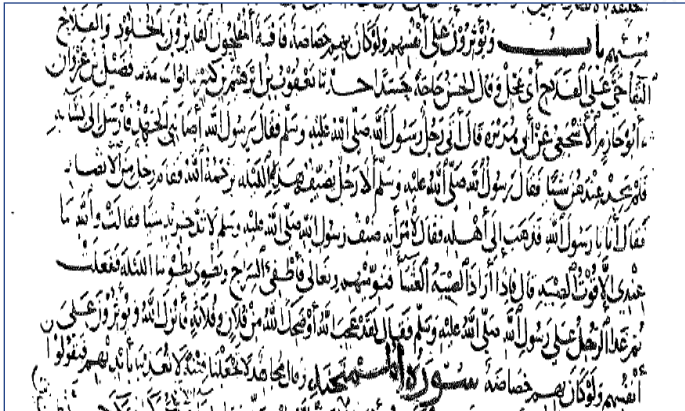 مسيئهم باب ويؤثرون على أنفسهم ولو كان بهم خصاصة فاقة المفلحون الفائزون بالخلود والفلاح
البقا حي على الفلاح أي عجل وقال الحسن حاجة حسدا حدثنا يعقوب بن إبراهيم بن كثير نا أبو أسامة نا فضيل بن غزوان
نا أبو حازم الأشجعي عن أبي هريرة قال أتى رجل رسول الله صلى الله عليه وسلم فقال يا رسول الله أصابني الجهد فأرسل إلى نسائه
فلم يجد عندهن شيئا فقال رسول الله صلى الله عليه وسلم ألا رجل يضيف هذه الليلة يرحمه الله فقام رجل من الأنصار
فقال أنا يا رسول الله فذهب إلى أهله فقال لامرأته ضيف رسول الله صلى الله عليه وسلم لا تدخريه شيئا فقالت والله ما
عندي إلا قوت الصبية قال فإذا أراد الصبية العشا فنوميهم وتعالي فأطفئ السراج ونطوي بطوننا الليلة ففعلت
ثم غدا الرجل على رسول الله صلى الله عليه وسلم فقال لقد عجب الله أو ضحك الله من فلان وفلانة فأنزل الله ويؤثرون على
أنفسهم ولو كان بهم خصاصة سورة الممتحنة وقال مجاهد لا تجعلنا فتنة لا تعذبنا بأيديهم فيقولوا